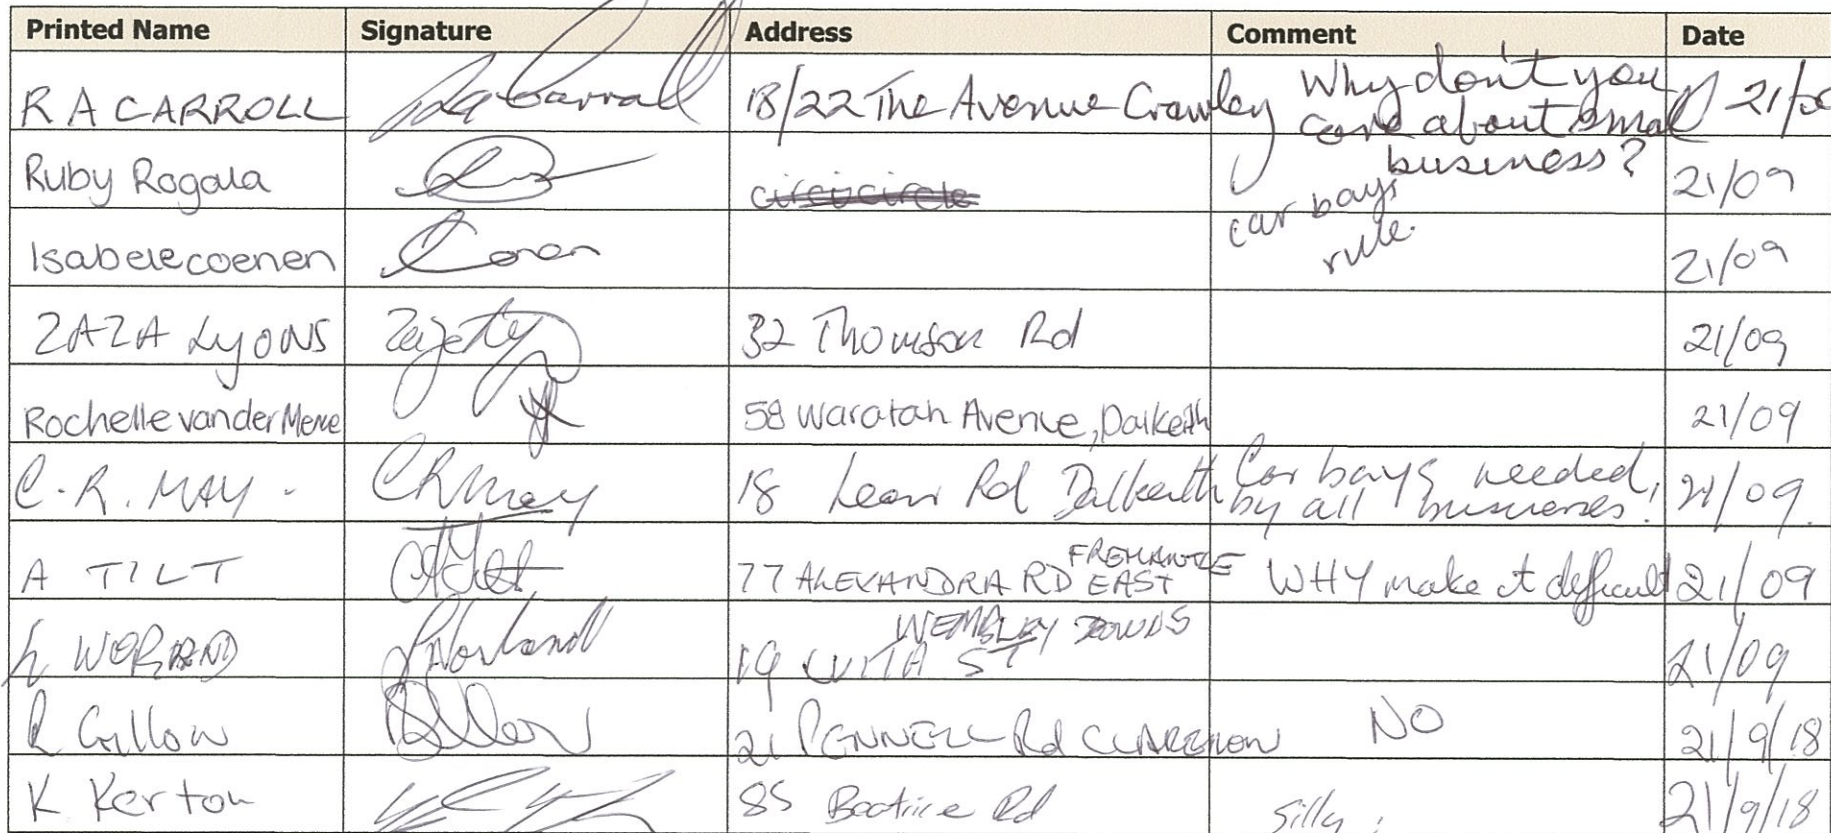 Printed Name Signature Address Comment Date
R A CARROLL 18/22 The Avenue Crawley Why don't you 21/0
care about small
business?
Ruby Rogala 21/09
car bays
rule.
Isabelecoenen Coenen 21/09
ZAZA Lyons 32 Thomson Rd 21/09
Rochelle van der Merwe 58 Waratah Avenue, Dalkeith 21/09
C. R. MAY - CRMay 18 Leon Rd Dalkeith Car bays needed, 21/09.
by all businesses!
A TILT 77 ALEXANDRA RD EAST FREMANTLE WHY make it difficult 21/09
WEMBLEY DOWNS
19 ST 21/09
R Gillow 21 Rd NO 21/9/18
K Kerton 85 Beatrice Rd Silly 21/9/18